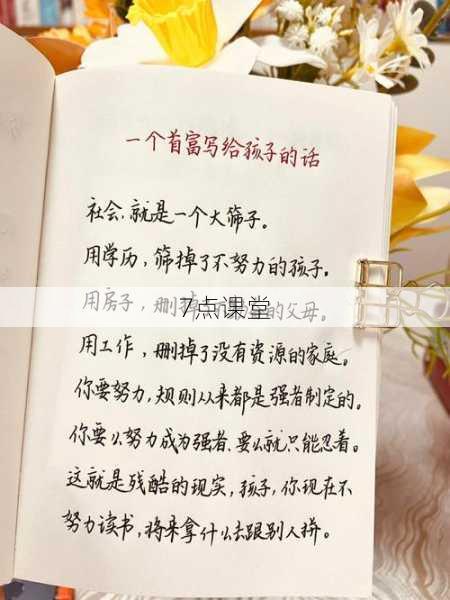 一个首富写给孩子的话
社会，就是一个大筛子。
用学历，筛掉了不努力的孩子。
用房子，删掉的父母。
7点课堂
用工作，删掉了没有资源的家庭。
你要努力，规则从来都是强者制定的。
你要么努力成为强者，要么就只能忍着。
这就是残酷的现实，孩子，你现在不
努力读书，将来拿什么去跟别人拼。